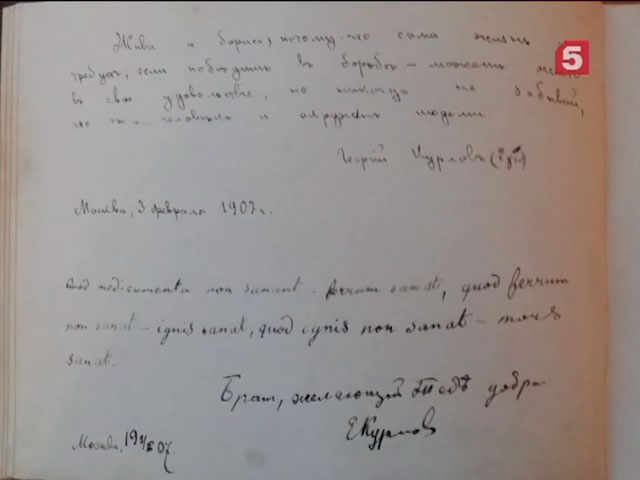 Живи и борись, потому что сама жизнь
5
требуетъ, если победишь въ борьбѣ – можешь жить
въ свое удовольствие, но никогда не забывай,
что ты человѣкъ и окруженъ людьми.
Георгій Курловъ
Москва, 3 февраля 1907 г.
Quod medicamenta non sanant – ferrum sanat, quod ferrum
non sanat – ignis sanat, quod ignis non sanat – mors
sanat.
Братъ, желающій Тебѣ добра
ЕКурловъ
Москва, 19 07